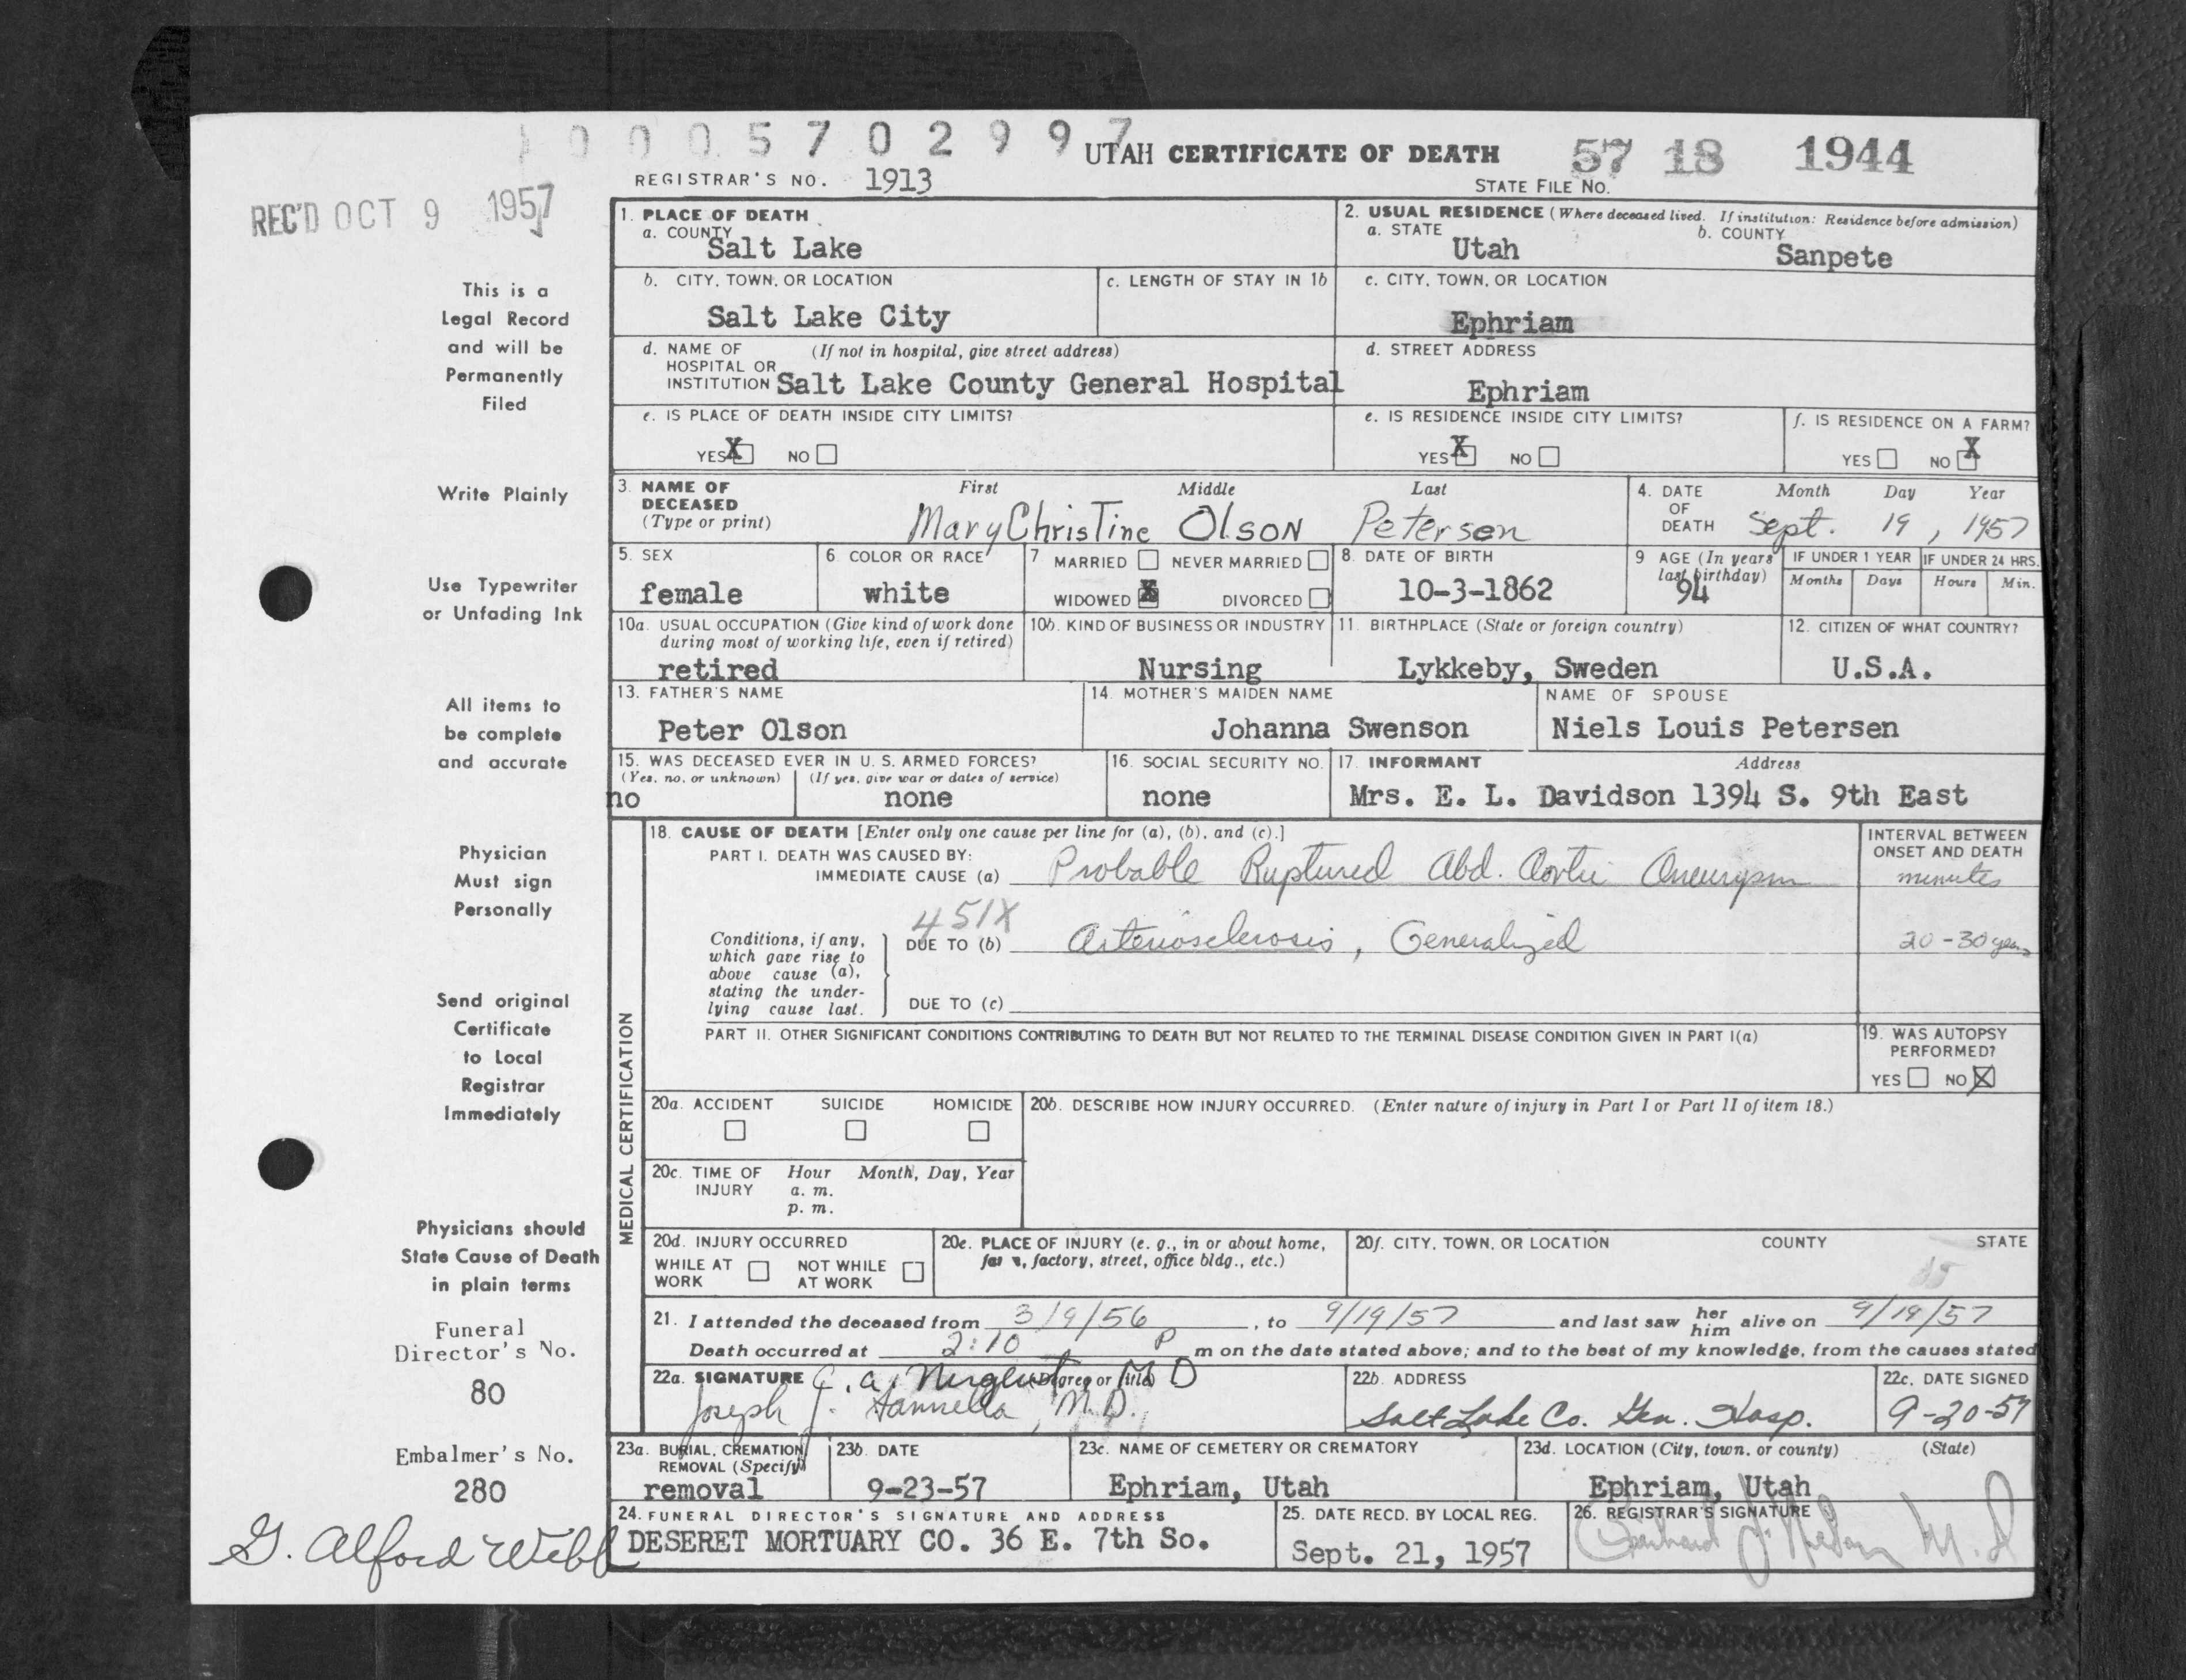 1 0 0 0 5 7 0 2 9 9 7
UTAH CERTIFICATE OF DEATH
57 18 1944
REGISTRAR'S NO. 1913
STATE FILE NO.
REC'D OCT 9 1957
This is a
Legal Record
and will be
Permanently
Filed
Write Plainly
Use Typewriter
or Unfading Ink
All items to
be complete
and accurate
Physician
Must sign
Personally
Send original
Certificate
to Local
Registrar
Immediately
Physicians should
State Cause of Death
in plain terms
Funeral
Director's No.
80
Embalmer's No.
280
G. Alford Webb
1. PLACE OF DEATH
a. COUNTY
Salt Lake
2. USUAL RESIDENCE (Where deceased lived. If institution: Residence before admission)
a. STATE
Utah
b. COUNTY
Sanpete
b. CITY, TOWN, OR LOCATION
Salt Lake City
c. LENGTH OF STAY IN 1b
c. CITY, TOWN, OR LOCATION
Ephriam
d. NAME OF (If not in hospital, give street address)
HOSPITAL OR
INSTITUTION Salt Lake County General Hospital
d. STREET ADDRESS
Ephriam
e. IS PLACE OF DEATH INSIDE CITY LIMITS?
YES X NO
e. IS RESIDENCE INSIDE CITY LIMITS?
YES X NO
f. IS RESIDENCE ON A FARM?
YES NO X
3. NAME OF
DECEASED
(Type or print)
First Middle Last
Mary Christine Olson Petersen
4. DATE
OF
DEATH
Month Day Year
Sept. 19, 1957
5. SEX
female
6 COLOR OR RACE
white
7 MARRIED NEVER MARRIED
WIDOWED X DIVORCED
8. DATE OF BIRTH
10-3-1862
9 AGE (In years
last birthday)
94
IF UNDER 1 YEAR
Months Days
IF UNDER 24 HRS.
Hours Min.
10a. USUAL OCCUPATION (Give kind of work done
during most of working life, even if retired)
retired
10b. KIND OF BUSINESS OR INDUSTRY
Nursing
11. BIRTHPLACE (State or foreign country)
Lykkeby, Sweden
12. CITIZEN OF WHAT COUNTRY?
U.S.A.
13. FATHER'S NAME
Peter Olson
14. MOTHER'S MAIDEN NAME
Johanna Swenson
NAME OF SPOUSE
Niels Louis Petersen
15. WAS DECEASED EVER IN U. S. ARMED FORCES?
(Yes, no, or unknown) (If yes, give war or dates of service)
no none
16. SOCIAL SECURITY NO.
none
17. INFORMANT Address
Mrs. E. L. Davidson 1394 S. 9th East
MEDICAL CERTIFICATION
18. CAUSE OF DEATH [Enter only one cause per line for (a), (b), and (c).]
PART I. DEATH WAS CAUSED BY:
IMMEDIATE CAUSE (a) Probable Ruptured Abd. Aortic Aneurysm
INTERVAL BETWEEN
ONSET AND DEATH
minutes
451X
Conditions, if any,
which gave rise to
above cause (a),
stating the under-
lying cause last.
DUE TO (b) Arteriosclerosis, Generalized
20-30 years
DUE TO (c)
PART II. OTHER SIGNIFICANT CONDITIONS CONTRIBUTING TO DEATH BUT NOT RELATED TO THE TERMINAL DISEASE CONDITION GIVEN IN PART I(a)
19. WAS AUTOPSY
PERFORMED?
YES NO X
20a. ACCIDENT SUICIDE HOMICIDE
20b. DESCRIBE HOW INJURY OCCURRED. (Enter nature of injury in Part I or Part II of item 18.)
20c. TIME OF
INJURY
Hour Month, Day, Year
a. m.
p. m.
20d. INJURY OCCURRED
WHILE AT
WORK
NOT WHILE
AT WORK
20e. PLACE OF INJURY (e. g., in or about home,
farm, factory, street, office bldg., etc.)
20f. CITY, TOWN, OR LOCATION COUNTY STATE
21. I attended the deceased from 3/9/56, to 9/19/57 and last saw her him alive on 9/19/57
Death occurred at 2:10 P m on the date stated above; and to the best of my knowledge, from the causes stated
22a. SIGNATURE (Degree or title) MD
Joseph J. M.D.
22b. ADDRESS
Salt Lake Co. Gen. Hosp.
22c. DATE SIGNED
9-20-57
23a. BURIAL, CREMATION,
REMOVAL (Specify)
removal
23b. DATE
9-23-57
23c. NAME OF CEMETERY OR CREMATORY
Ephriam, Utah
23d. LOCATION (City, town, or county) (State)
Ephriam, Utah
24. FUNERAL DIRECTOR'S SIGNATURE AND ADDRESS
DESERET MORTUARY CO. 36 E. 7th So.
25. DATE RECD. BY LOCAL REG.
Sept. 21, 1957
26. REGISTRAR'S SIGNATURE
M.D.